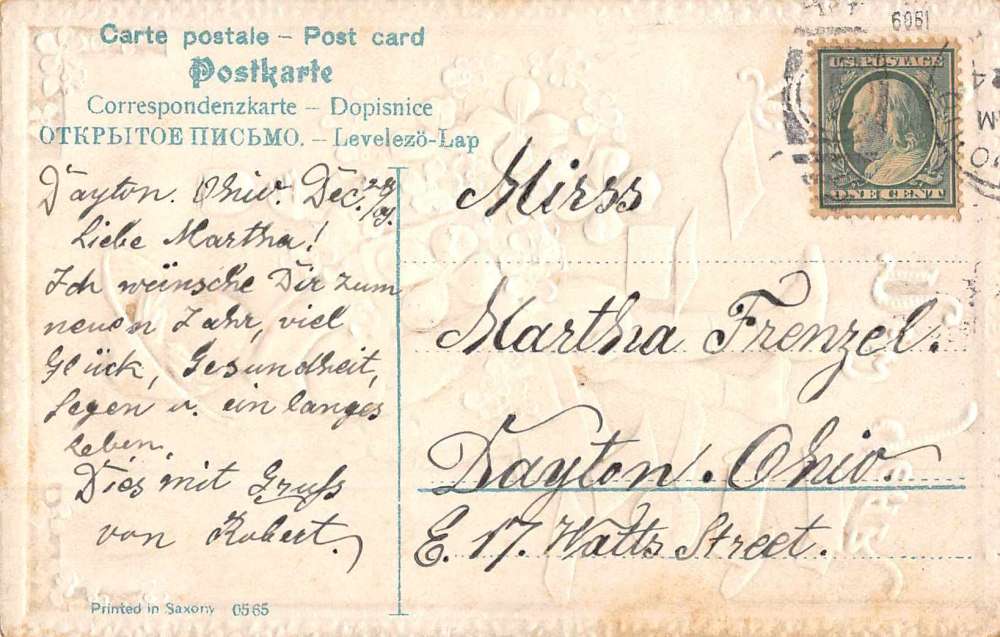 Carte postale – Post card
Postkarte
Correspondenzkarte – Dopisnice
ОТКРЫТОЕ ПИСЬМО. – Levelezö-Lap
Dayton. Ohio. Dec. 29/09.
Liebe Martha!
Ich wünsche Dir zum
neuen Jahr, viel
Glück, Gesundheit,
Segen u. ein langes
Leben.
Dies mit Gruß
von Robert.
Printed in Saxony 0565
1909
U.S. POSTAGE
ONE CENT
Mirss
Martha Frenzel.
Dayton. Ohio.
E. 17. Watts Street.